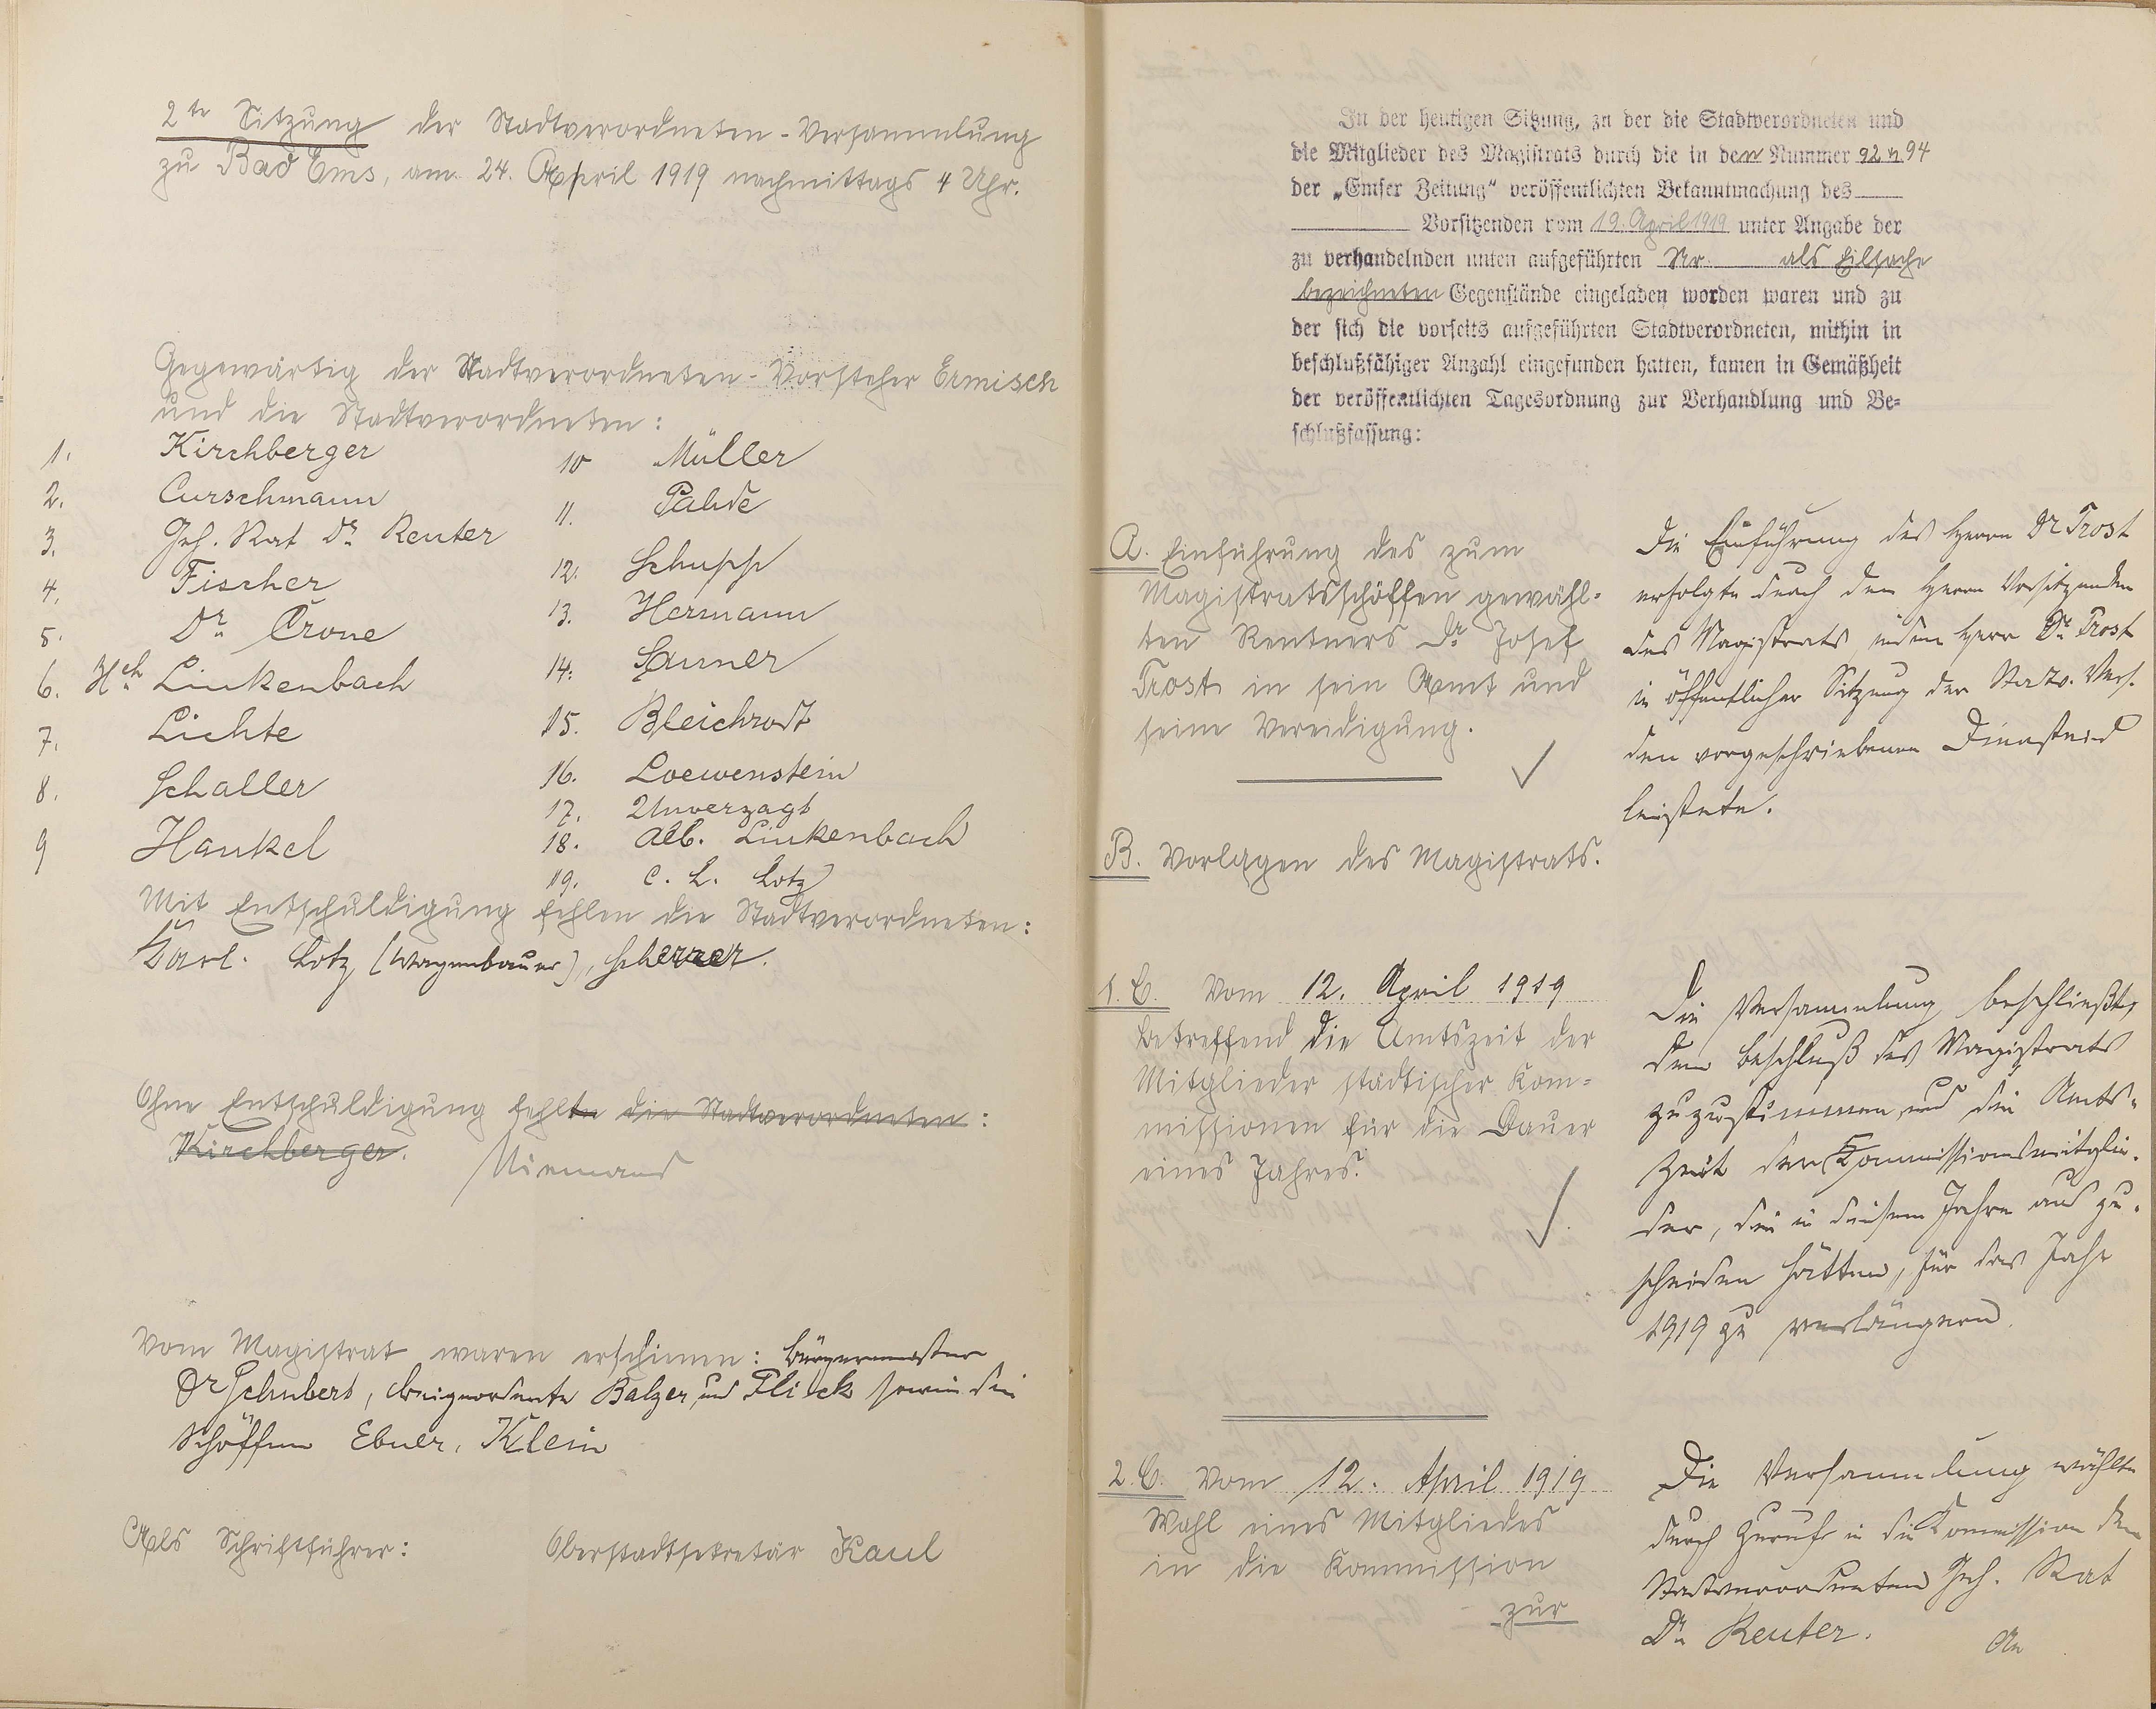 2te Sitzung der Stadtverordneten-Versammlung
zu Bad Ems, am 24. April 1919 nachmittags 4 Uhr.
Gegenwärtig der Stadtverordneten-Vorsteher Ermisch
und die Stadtverordneten:
1. Kirchberger
2. Curschmann
3. Geh. Rat Dr. Reuter
4. Fischer
5. Dr. Crone
6. Hch. Linkenbach
7. Lichte
8. Schaller
9 Hankel
10 Müller
11. Pabde
12. Schupp
13. Hermann
14. Sauner
15. Bleichrodt
16. Loewenstein
17. Unverzagt
18. Alb. Linkenbach
19. C. L. Lotz
Mit Entschuldigung fehlen die Stadtverordneten:
Karl Lotz, (Wagenbauer), Scherrer.
Ohne Entschuldigung fehlte die Stadtverordneten:
Kirchberger. Niemand
Vom Magistrat waren erschienen: Bürgermeister
Dr Schubert, Beigeordnete Balzer und Flick sowie die
Schöffen Ebner, Klein
Als Schriftführer: Oberstadtsekretär Kaul
In der heutigen Sitzung, zu der die Stadtverordneten und
die Mitglieder des Magistrats durch die in den Nummer 92 u. 94
der „Emser Zeitung“ veröffentlichten Bekanntmachung des
Vorsitzenden vom 19. April 1919 unter Angabe der
zu verhandelnden unten aufgeführten Nr. als Eilsache
bezeichneten Gegenstände eingeladen worden waren und zu
der sich die vorseits aufgeführten Stadtverordneten, mithin in
beschlußfähiger Anzahl eingefunden hatten, kamen in Gemäßheit
der veröffentlichten Tagesordnung zur Verhandlung und Be-
schlußfassung:
A. Einführung des zum
Magistratsschöffen gewähl-
ten Rentners Dr. Josef
Trost in sein Amt und
seine Vereidigung.
Die Einführung des Herrn Dr Trost
erfolgte durch den Herrn Vorsitzenden
des Magistrats, indem Herr Dr. Trost
in öffentlicher Sitzung der Stadtv. Vers.
den vorgeschriebenen Diensteid
leistete.
B. Vorlagen des Magistrats.
1. C. Vom 12. April 1919
betreffend die Amtszeit der
Mitglieder städtischer Kom-
missionen für die Dauer
eines Jahres.
Die Versammlung beschließt,
dem Beschluß des Magistrats
zuzustimmen und die Amts-
zeit der Kommissionsmitglie-
der, die in diesem Jahre auszu-
scheiden hätten, für das Jahr
1919 zu verlängern.
2. C. Vom 12. April 1919
Wahl eines Mitgliedes
in die Kommission
zur
Die Versammlung wählte
durch Zuruf in die Kommission den
Stadtverordneten Geh. Rat
Dr. Reuter.
An